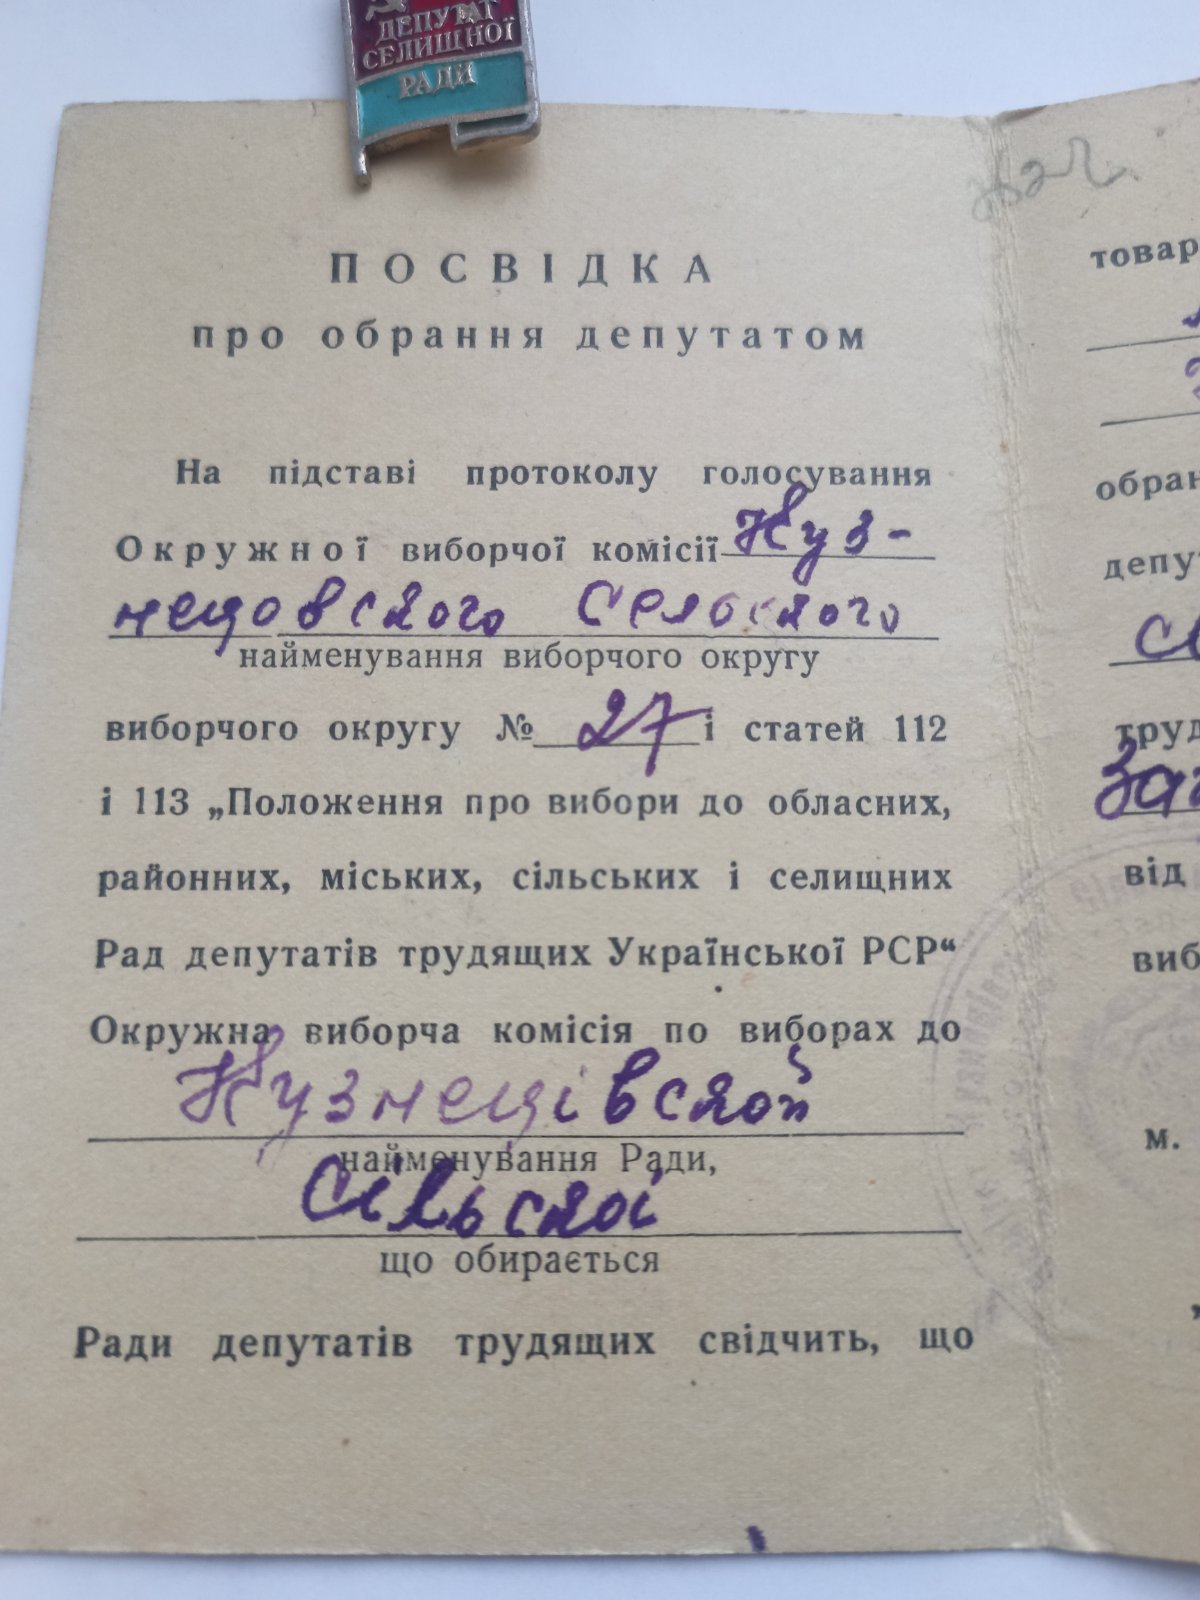 ДЕПУТАТ
СЕЛИЩНОЇ
РАДИ
ПОСВІДКА
про обрання депутатом
На підставі протоколу голосування
Окружної виборчої комісії Куз-
нецовского Сельского
найменування виборчого округу
виборчого округу № 27 і статей 112
і 113 „Положення про вибори до обласних,
районних, міських, сільських і селищних
Рад депутатів трудящих Української РСР“
Окружна виборча комісія по виборах до
Кузнецівской
найменування Ради,
Сільскої
що обирається
Ради депутатів трудящих свідчить, що
товар
обран
депу
труд
від
виб
м.